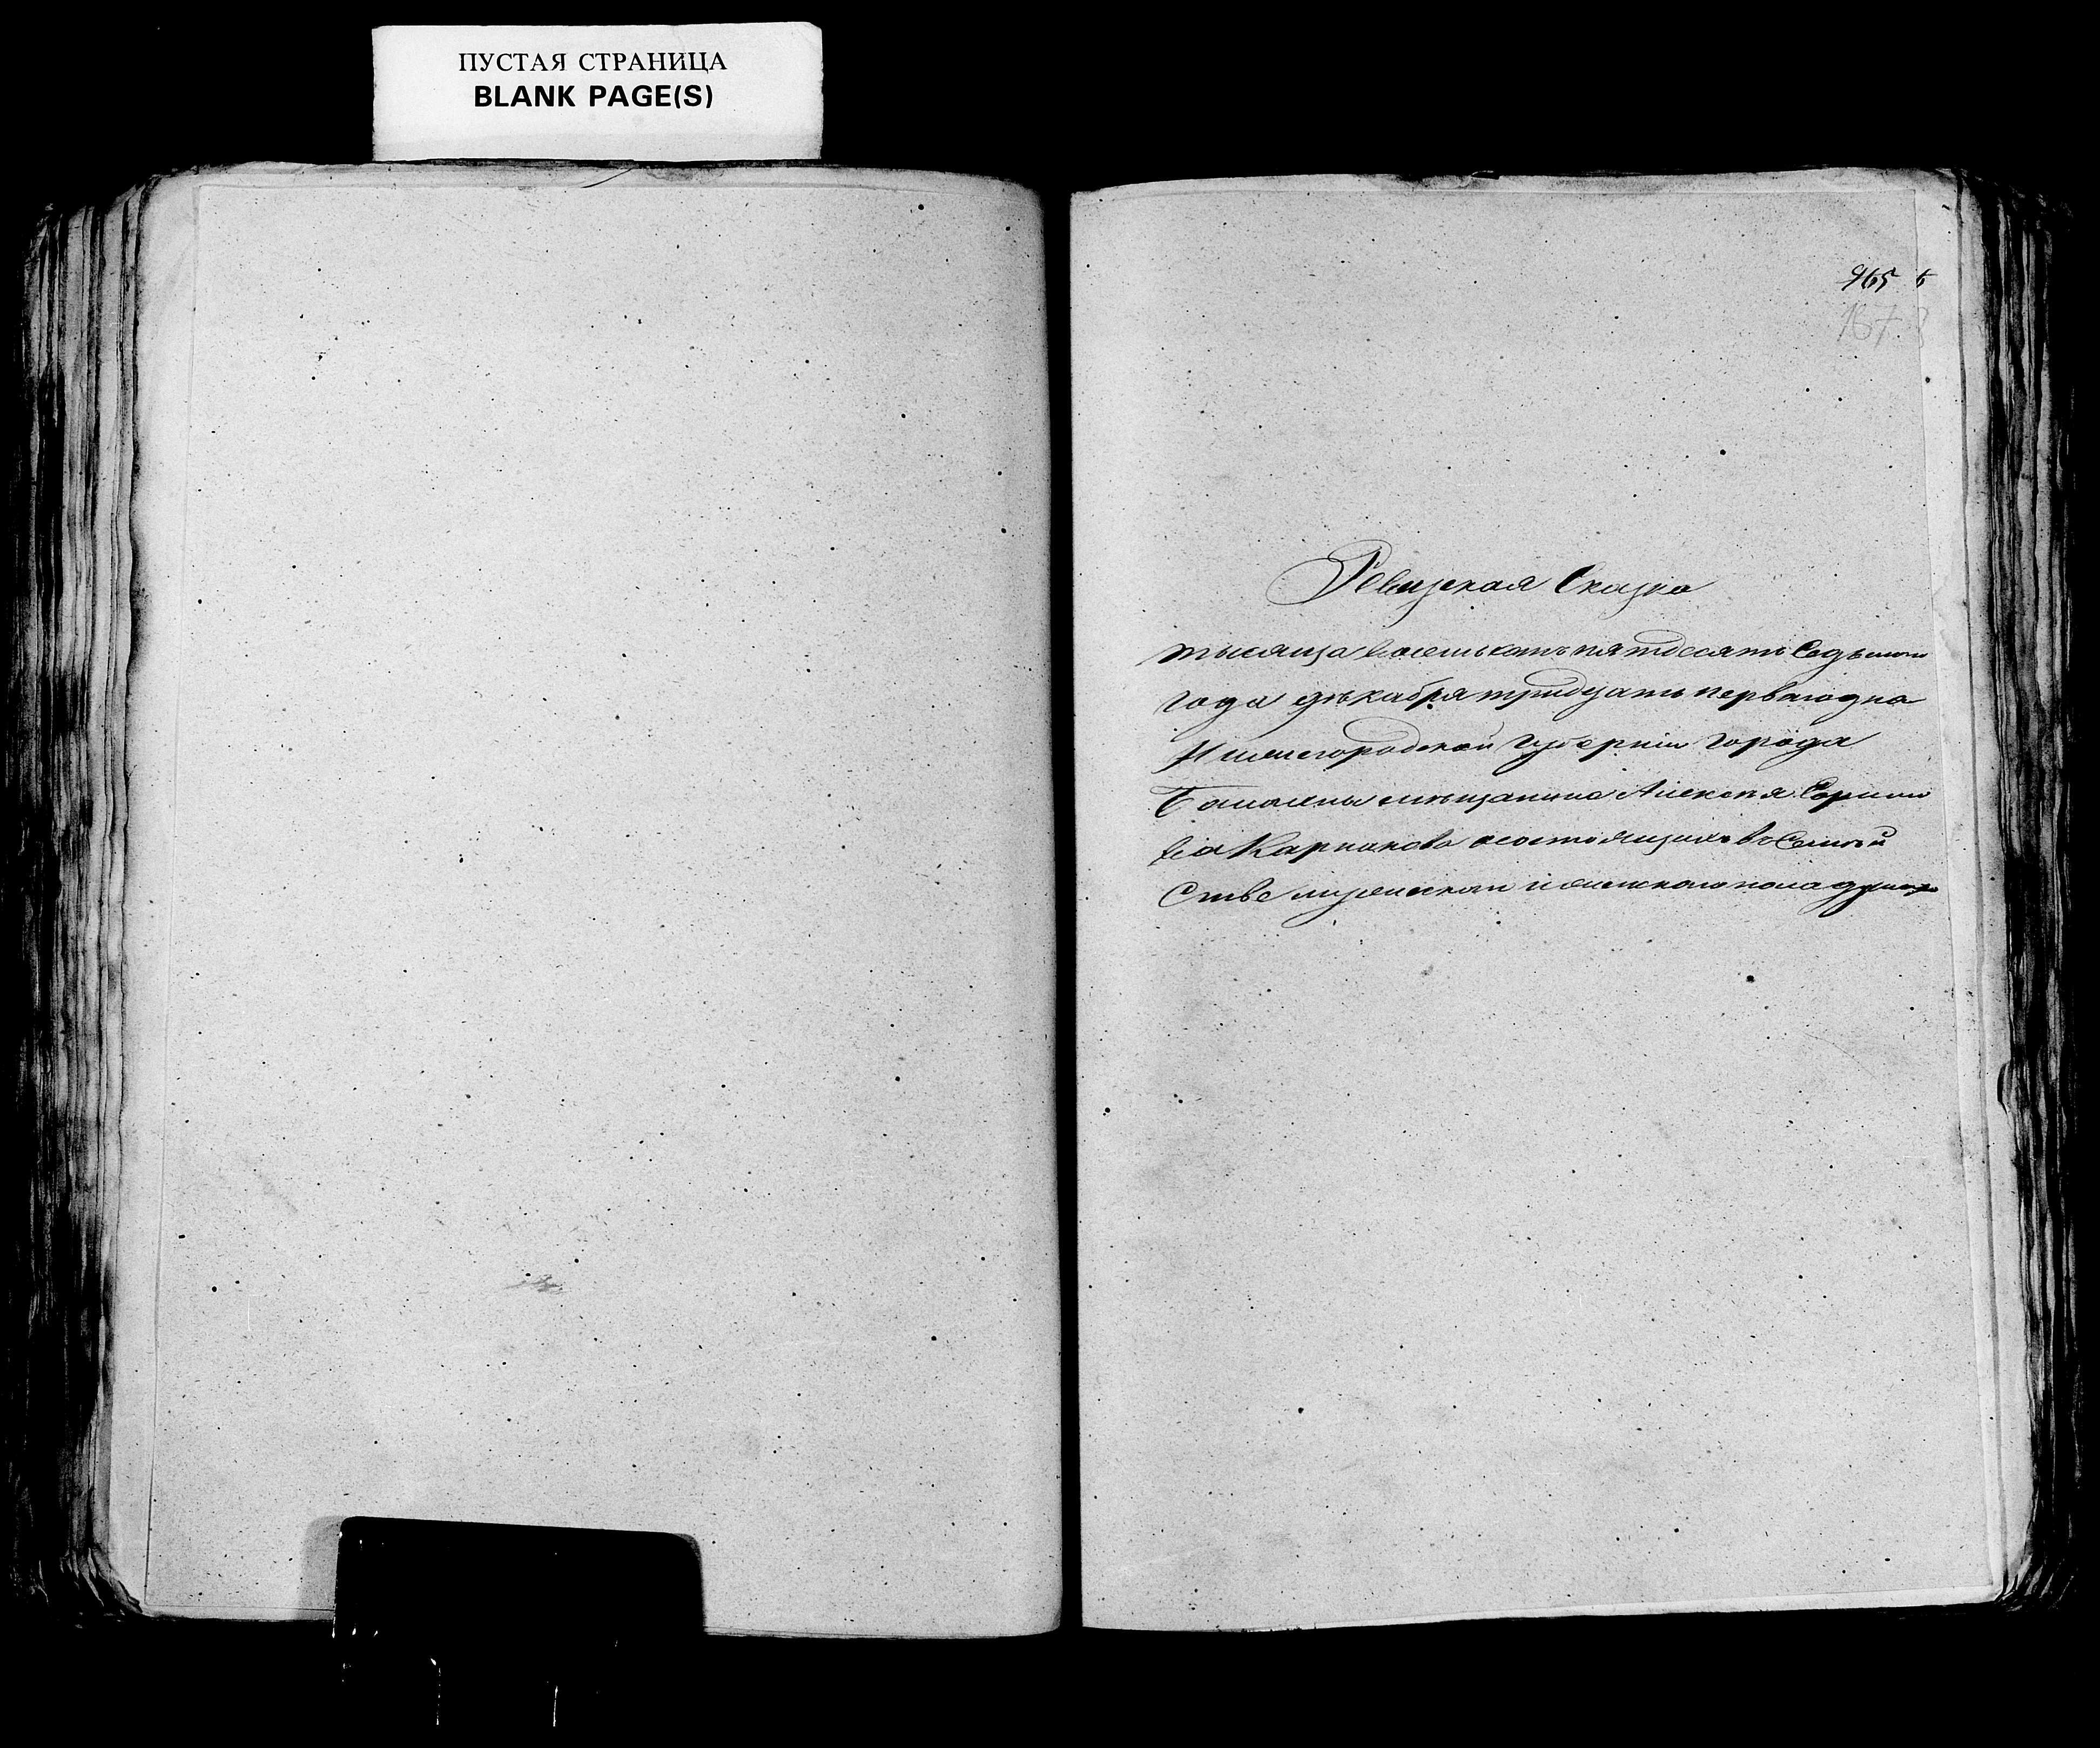 ПУСТАЯ СТРАНИЦА
BLANK PAGE(S)
965
167
Ревизская Сказка
тысяща восемьсотъ пятдесятъ Седьмого
года дѣкабря тридцать перваго дна
Нижегородской губерніи города
Балахны мѣщанина Алексѣя
Карпакова о состоящихъ въ Семѣй
стве мужеска и женскаго пола душахъ